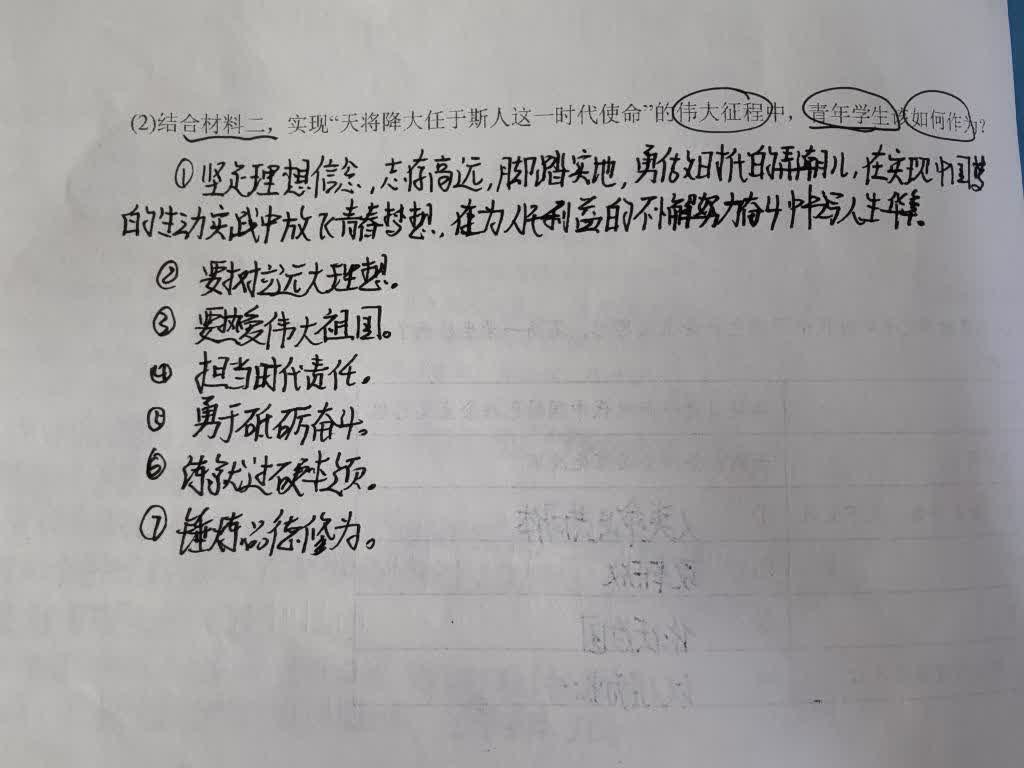 (2)结合材料二，实现“天将降大任于斯人这一时代使命”的伟大征程中，青年学生该如何作为?
①坚定理想信念，志存高远，脚踏实地，勇做时代的弄潮儿，在实现中国梦
的生动实践中放飞青春梦想，在为人民利益的不懈努力奋斗中书写人生华章。
② 要树立远大理想。
③ 要热爱伟大祖国。
④ 担当时代责任。
⑤ 勇于砥砺奋斗。
⑥ 练就过硬本领。
⑦ 锤炼品德修为。